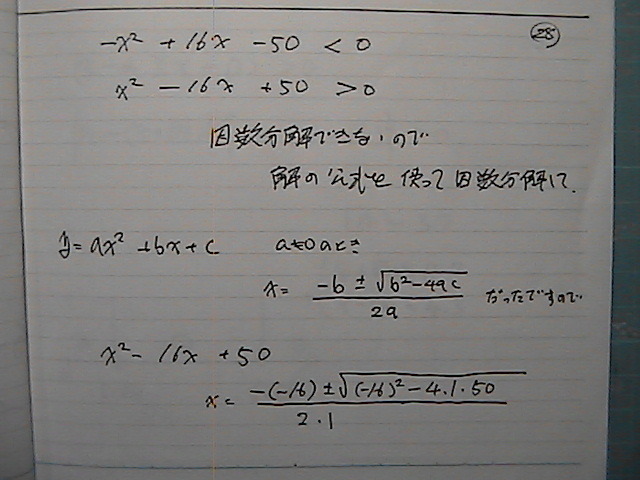 28
-x² + 16x - 50 < 0
x² - 16x + 50 > 0
因数分解できないので
解の公式を使って因数分解して.
y = ax² + bx + c a≠0のとき
x = (-b ± √(b² - 4ac)) / 2a だったですので
x² - 16x + 50
x = (-(-16) ± √((-16)² - 4.1.50)) / 2.1